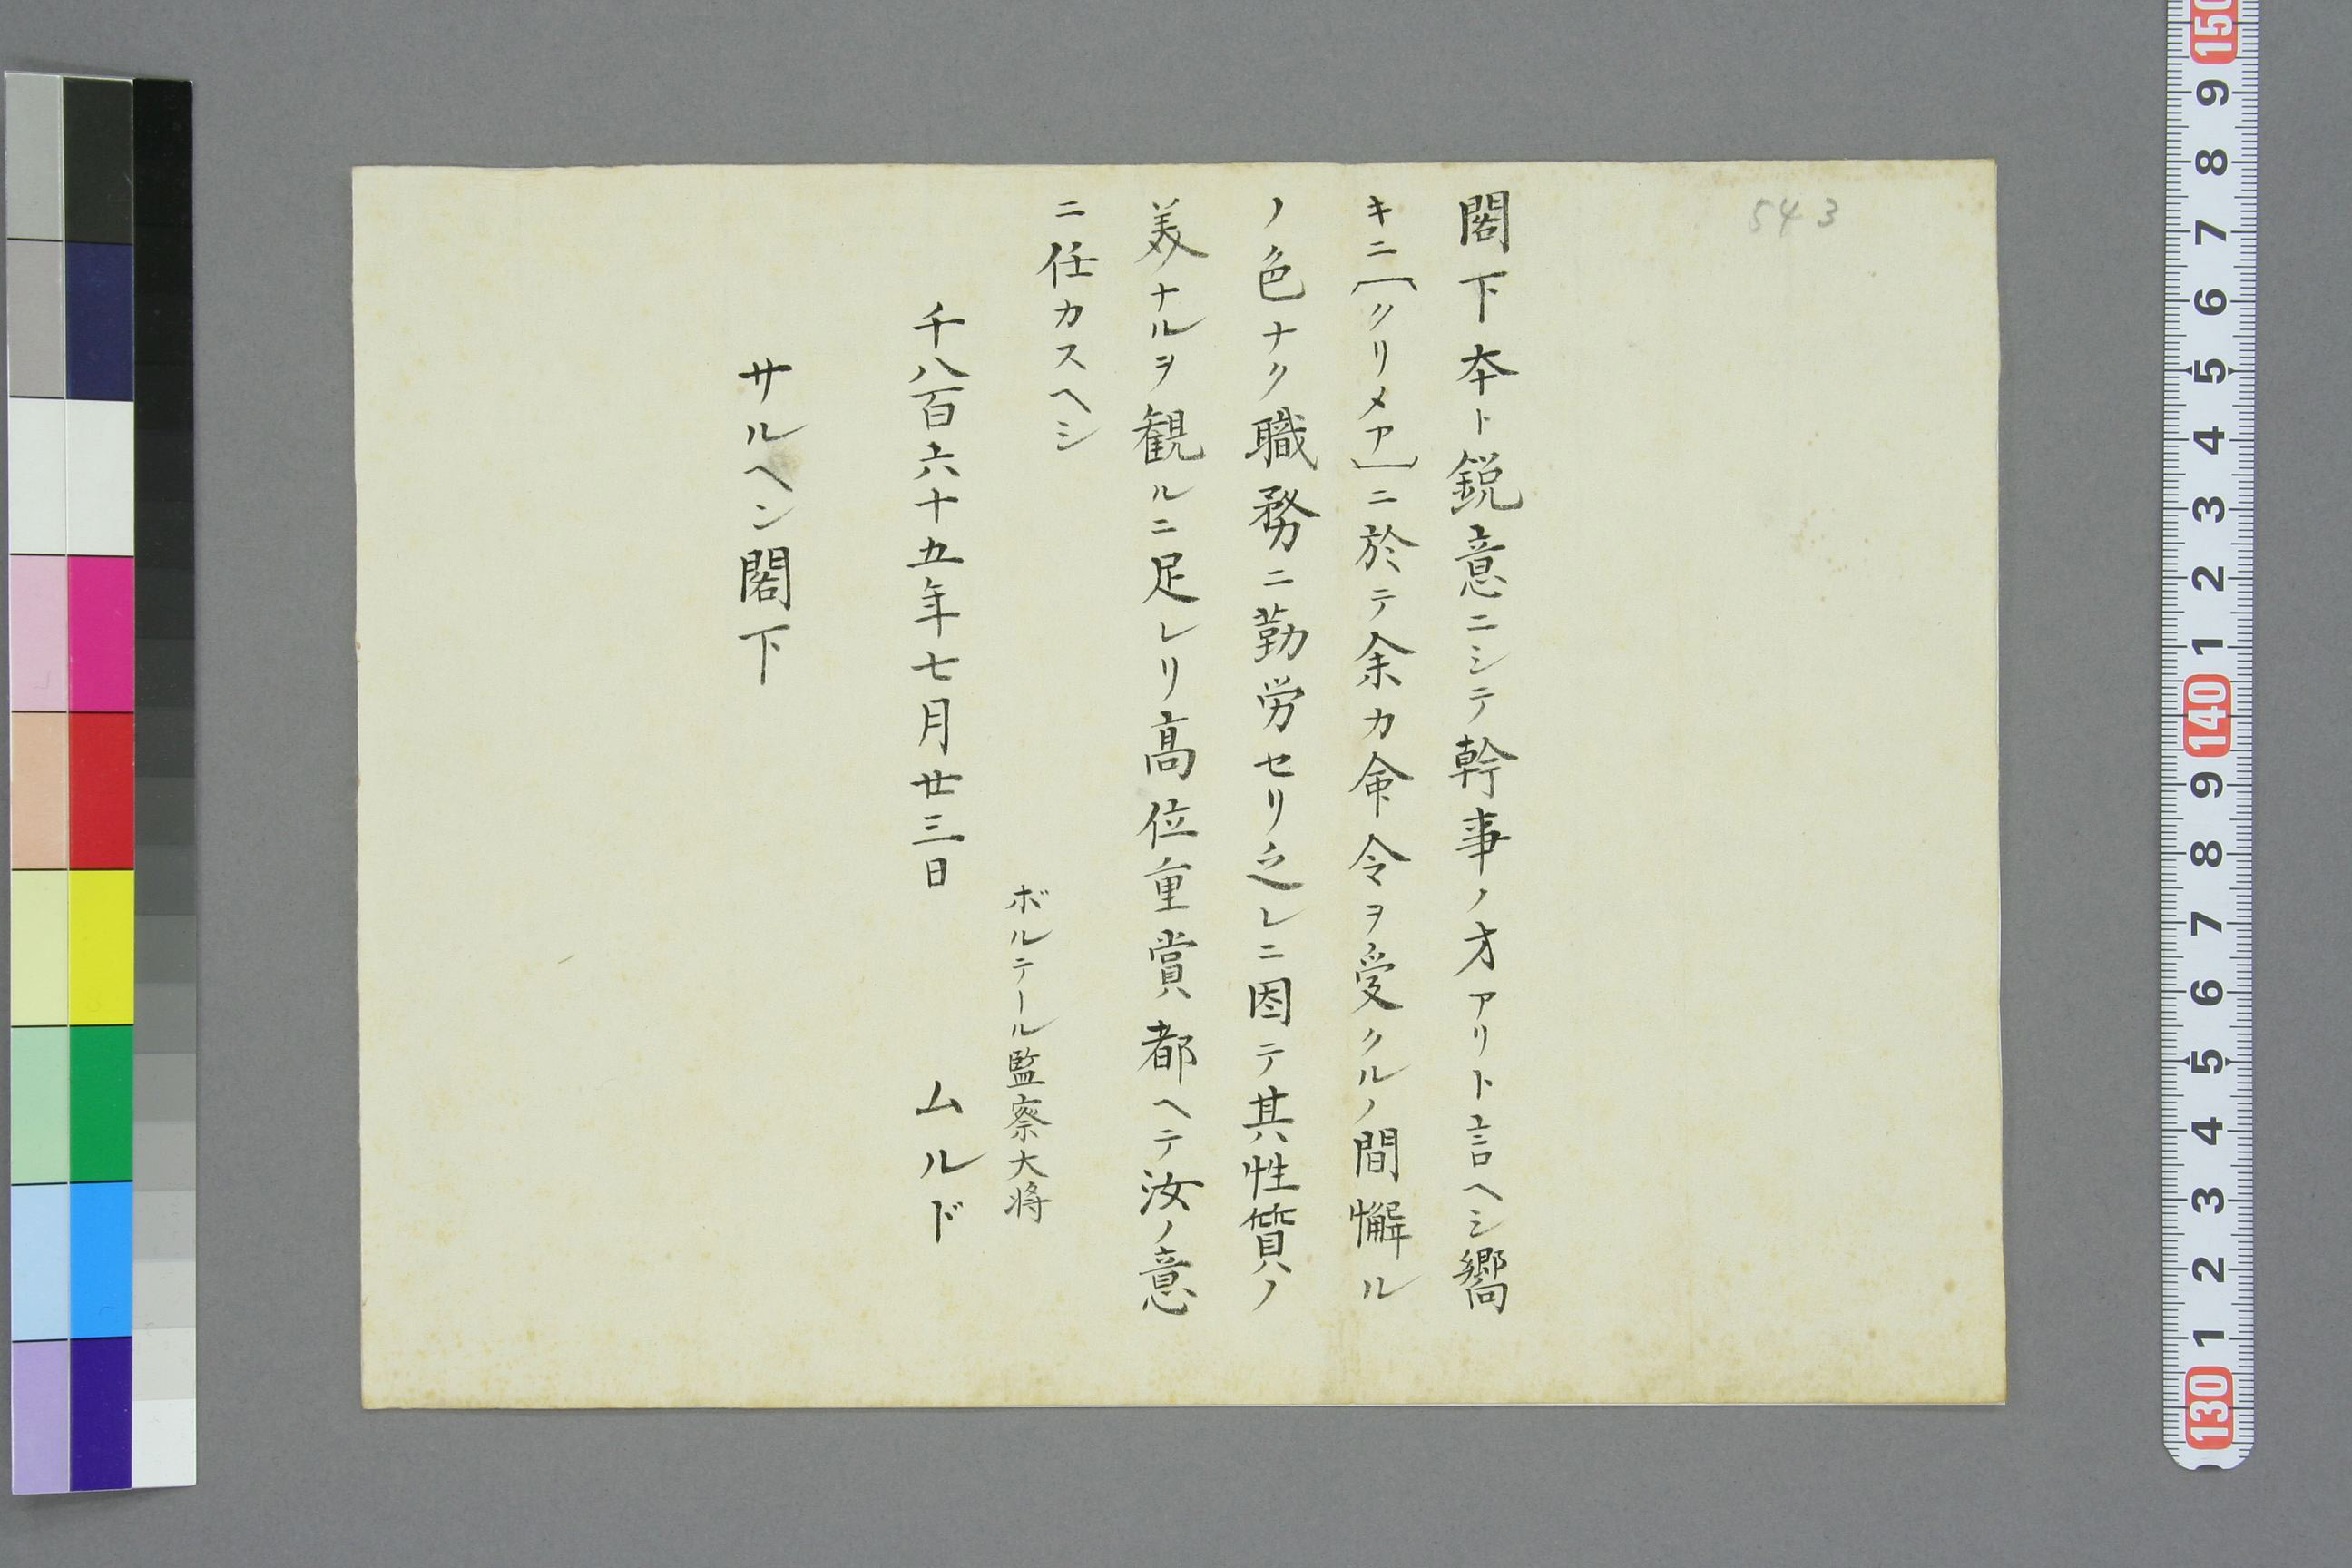 543
閣下本ト鋭意ニシテ幹事ノ才アリト言ヘシ嚮
キニ〔クリメア〕ニ於テ余カ命令ヲ受クルノ間懈ル
ノ色ナク職務ニ勤労セリ之レニ因テ其性質ノ
美ナルヲ観ルニ足レリ高位重賞都ヘテ汝ノ意
ニ任カスヘシ
ボルテール監察大将
千八百六十五年七月廿三日　ムルド
サルヘン閣下
150
9
8
7
6
5
4
3
2
1
140
9
8
7
6
5
4
3
2
1
130